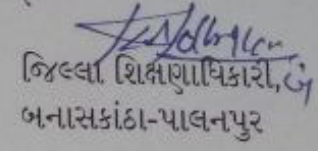 જિલ્લા શિક્ષણાધિકારી,
બનાસકાંઠા-પાલનપુર